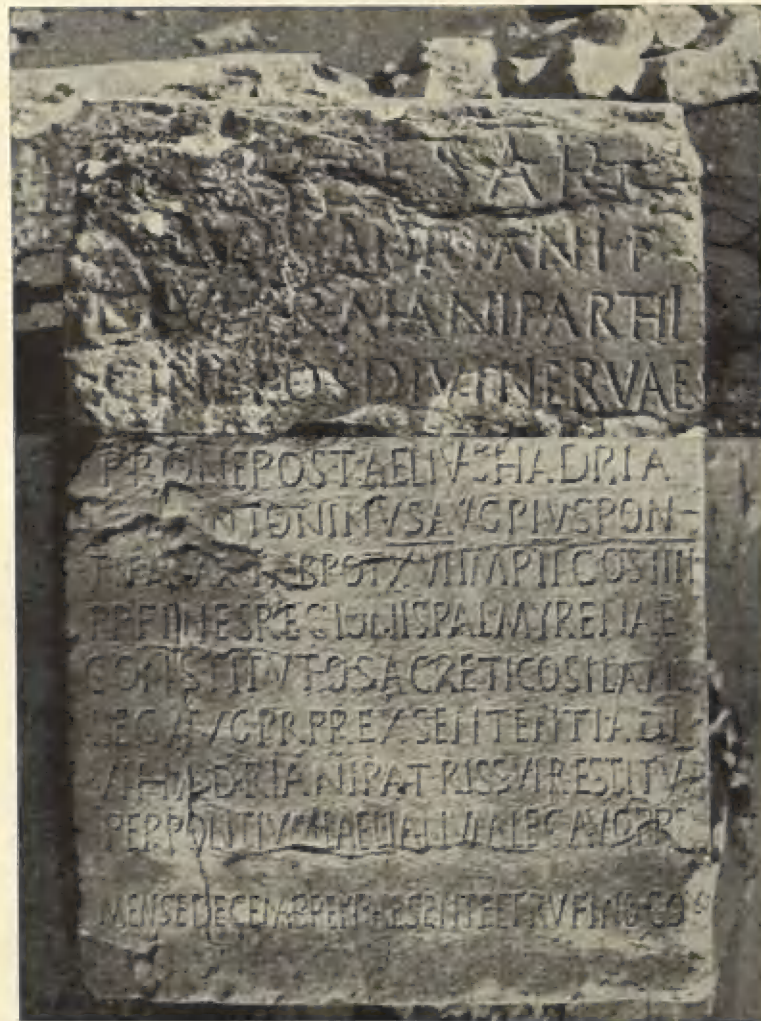 CAE
HADRIANI F
DIVI TRAIANI PARTHI
CI NEPOS DIVI NERVAE
PRONEPOS T AELIVS HADRIA
ANTONINVS AVG PIVS PON
TIF MAX TRIB POT XVI IMP II COS IIII
P P FINES REGIONIS PALMYRENAE
CONSTITVTOS A CRETICO SILANO
LEG AVG PR PR EX SENTENTIA DI
VI HADRIANI PATRIS SVI RESTITV
PER PONTIVM LAELIANVM LEG AVG PR
MENSE DECEMBRE PRAESENTE ET RVFINO COS